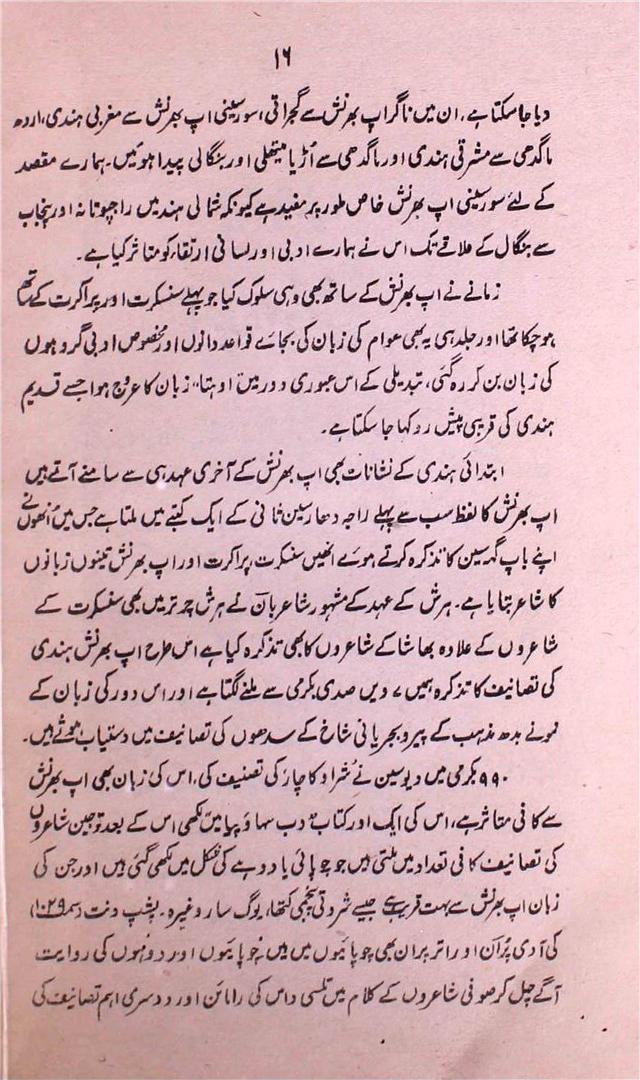 ۱۶
دیا جا سکتا ہے۔ ان میں ناگر اپ بھرنش سے گجراتی، سورسینی اپ بھرنش سے مغربی ہندی، اردو
ماگدھی سے مشرقی ہندی اور ماگدھی سے اڑیا میتھلی اور بنگالی پیدا ہوئیں۔ ہمارے مقصد
کے لئے سورسینی اپ بھرنش خاص طور پر مفید ہے کیونکہ شمالی ہند میں راجپوتانہ اور پنجاب
سے بنگال کے علاقے تک اس نے ہمارے ادبی اور لسانی ارتقاء کو متاثر کیا ہے۔
زمانے نے اپ بھرنش کے ساتھ بھی وہی سلوک کیا جو پہلے سنسکرت اور پراکرت کے ساتھ
ہو چکا تھا اور جلد ہی یہ بھی عوام کی زبان کی بجائے قواعد دانوں اور مخصوص ادبی گروہوں
کی زبان بن کر رہ گئی، تبدیلی کے اس عبوری دور میں "اوہتا" زبان کا عروج ہوا جسے قدیم
ہندی کی قریبی پیش رو کہا جا سکتا ہے۔
ابتدائی ہندی کے نشانات بھی اپ بھرنش کے آخری عہد ہی سے سامنے آتے ہیں
اپ بھرنش کا لفظ سب سے پہلے راجہ دھارسین ثانی کے ایک کتبے میں ملتا ہے جس میں انھوں نے
اپنے باپ گہرسین کا تذکرہ کرتے ہوئے انھیں سنسکرت پراکرت اور اپ بھرنش تینوں زبانوں
کا شاعر بتایا ہے۔ ہرش کے عہد کے مشہور شاعر بان نے ہرش چرتر میں بھی سنسکرت کے
شاعروں کے علاوہ بھاشا کے شاعروں کا بھی تذکرہ کیا ہے اس طرح اپ بھرنش ہندی
کی تصانیف کا تذکرہ ہمیں ۷ ویں صدی بکرمی سے ملنے لگتا ہے اور اس دور کی زبان کے
نمونے بدھ مذہب کے پیرو بجریانی شاخ کے سدھوں کی تصانیف میں دستیاب ہوتے ہیں۔
۹۹۰ بکرمی میں دیوسین نے شراوکاچار کی تصنیف کی، اس کی زبان بھی اپ بھرنش
سے کافی متاثر ہے، اس کی ایک اور کتاب دب سہاؤ پیا میں لکھی اس کے بعد تو جین شاعروں
کی تصانیف کافی تعداد میں ملتی ہیں جو چوپائی یا دوہے کی شکل میں لکھی گئی ہیں اور جن کی
زبان اپ بھرنش سے بہت قریب ہے جیسے شروتی پنچمی کتھا، یوگ سار وغیرہ۔ پشپ دنت (سمہ ۱۰۲۹)
کی آدی پران اور اتر پران بھی چوپائیوں میں ہیں چوپائیوں اور دوہوں کی روایت
آگے چل کر صوفی شاعروں کے کلام میں تلسی داس کی رامائن اور دوسری اہم تصانیف کی